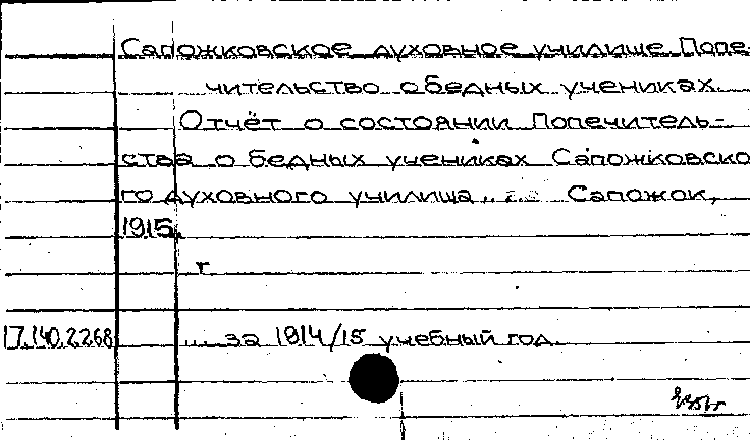 Сапожковское духовное училище. Попе-
чительство о бедных учениках.
Отчёт о состоянии Попечитель-
ства о бедных учениках Сапожковско
го духовного училища... Сапожок,
1915.
г
17.140.2.268 ... за 1914/15 учебный год.